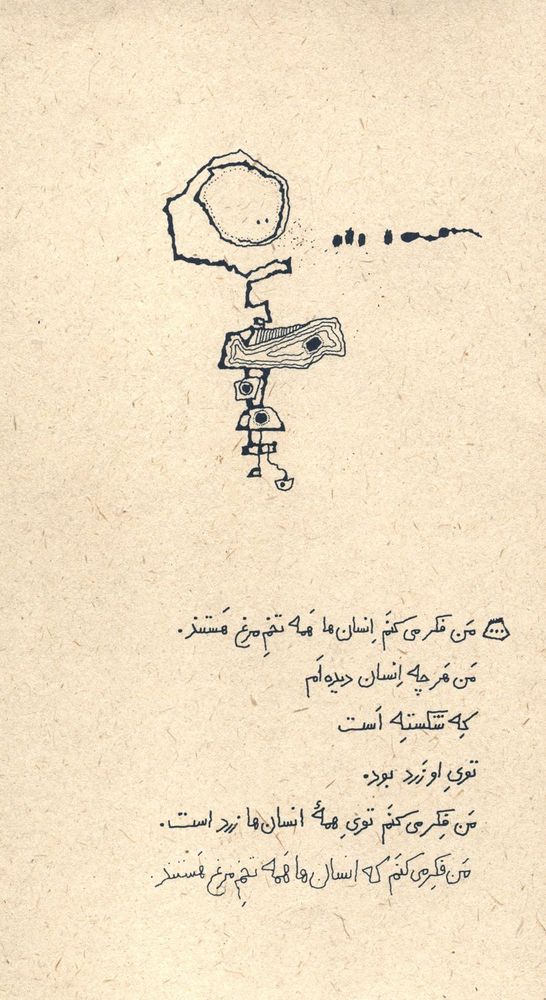 مَن فکر می کنَم اِنسان ها هَمه تُخمِ مرغ هَستند.
مَن هَر چه اِنسان دیده اَم
که شکَسته اَست
تویِ او زَرد بود.
مَن فِکر می کنَم تویِ همهٔ انسان ها زرد است.
مَن فِکر می کنَم که انسان ها هَمه تخمِ مرغ هَستند.